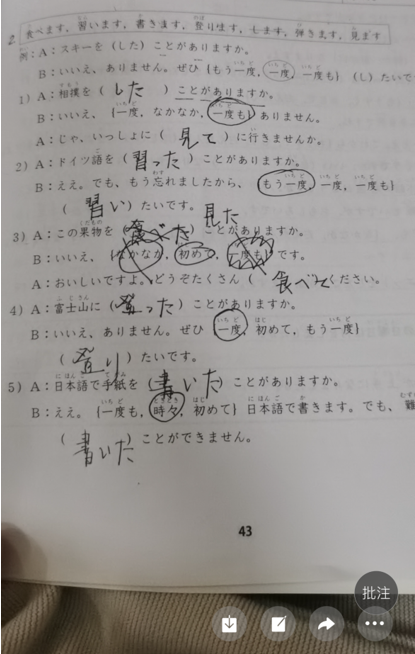 2 食べます、習います、書きます、登ります、します、弾きます、見ます
例：A：スキーを（した）ことがありますか。
B：いいえ、ありません。ぜひ｛もう一度, 一度, 一度も｝（し）たいで
1）A：相撲を（した）ことがありますか。
B：いいえ、｛一度, なかなか, 一度も｝ありません。
A：じゃ、いっしょに（見て）に行きませんか。
2）A：ドイツ語を（習った）ことがありますか。
B：ええ。でも、もう忘れましたから、｛もう一度, 一度, 一度も｝
（習い）たいです。
見た
3）A：この果物を（食べた）ことがありますか。
B：いいえ、｛なかなか, 初めて, 一度も｝です。
A：おいしいですよ。どうぞたくさん（食べてください。
4）A：富士山に（登った）ことがありますか。
B：いいえ、ありません。ぜひ｛一度, 初めて, もう一度｝
（登り）たいです。
5）A：日本語で手紙を（書いた）ことがありますか。
B：ええ。｛一度も, 時々, 初めて｝日本語で書きます。でも、難
（書いた）ことができません。
43
批注